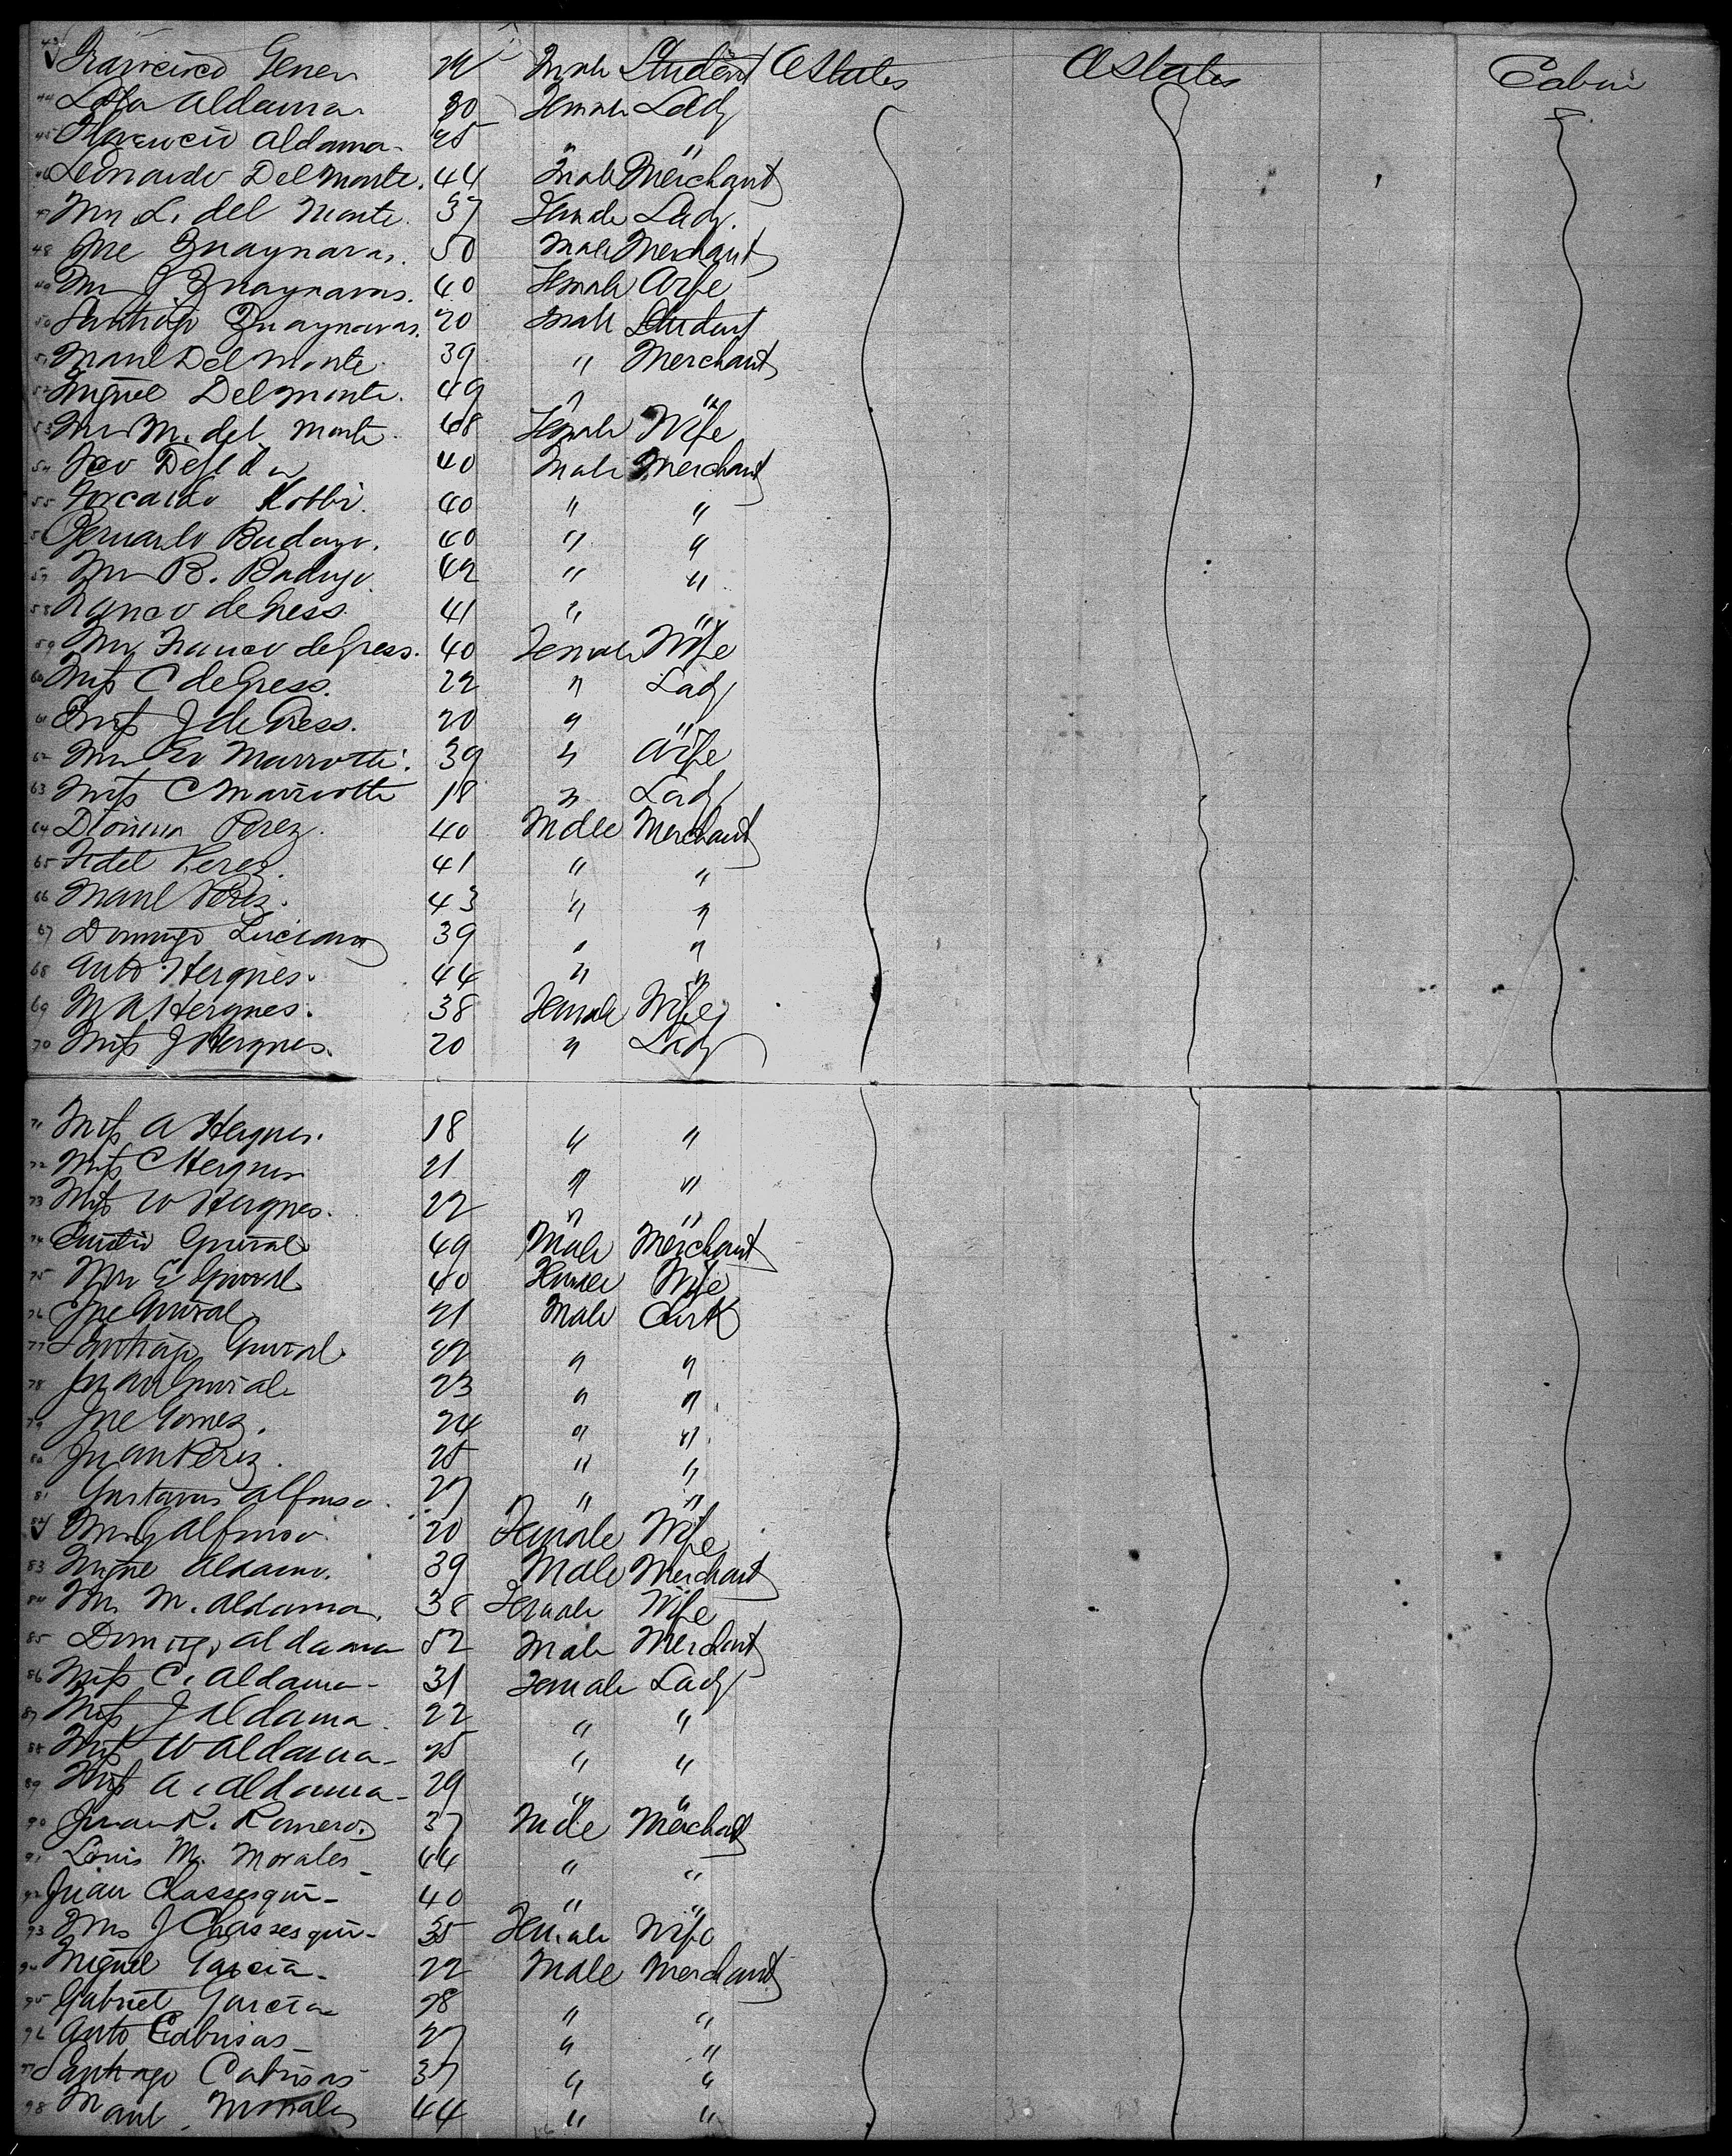 43 Francisco Gener 24 Male Student U States U States Cabin
44 Lola Aldama 30 Female Lady
45 Florencio Aldama 25 " "
46 Leonardo Del Monte. 44 Male Merchant
47 Mrs L. del Monte. 37 Female Lady.
48 Jne 50 Male Merchant
49 Mrs J 40 Female Wife
50 Santiago 20 Male Student
51 Manl Del Monte 39 " Merchant
52 Miguel Del Monte. 49 " "
53 Mrs M. del Monte. 48 Female Wife
54 40 Male Merchant
55 40 " "
56 Bernardo 40 " "
57 Mrs B. 42 " "
58 Franco de Gress. 41 " "
59 Mrs Franco de Gress. 40 Female Wife
60 Miss C de Gress. 22 " Lady
61 Miss J de Gress. 20 " "
62 Mrs Marrotti. 39 " Wife
63 Miss C Marriotti 18 " Lady
64 Perez. 40 Male Merchant
65 Fidel Perez. 41 " "
66 Manl Perez. 43 " "
67 Domingo Luciano 39 " "
68 Anto Hergues. 44 " "
69 M A Hergues. 38 Female Wife
70 Miss J Hergues. 20 " Lady
71 Miss A Hergues. 18 " "
72 Miss C Hergues 21 " "
73 Miss W Hergues. 22 " "
74 Guiral 49 Male Merchant
75 Mrs E Guiral 40 Female Wife
76 Jne Guiral 21 Male Clerk
77 Santiago Guiral 22 " "
78 Juan Guiral 23 " "
79 Jne Gomez. 24 " "
80 Juan Perez. 25 " "
81 Gustavus Alfonso. 27 " "
82 Mrs G Alfonso 20 Female Wife
83 Aldama. 39 Male Merchant
84 Mrs M. Aldama. 38 Female Wife
85 Domingo Aldama 52 Male Merchant
86 Miss C. Aldama- 31 Female Lady
87 Miss J Aldama 22 " "
88 Miss W Aldama- 25 " "
89 Miss A. Aldama- 29 " "
90 Juan R. Romero. 37 Male Merchant
91 Louis M. Morales- 44 " "
92 Juan Chassesqui- 40 " "
93 Mrs J Chassesqui- 35 Female Wife
94 Miguel Garcia- 22 Male Merchant
95 Gabriel Garcia 28 " "
96 Anto Cabrisas- 27 " "
97 Santiago Cabrisas 37 " "
98 Manl Morales 44 " "